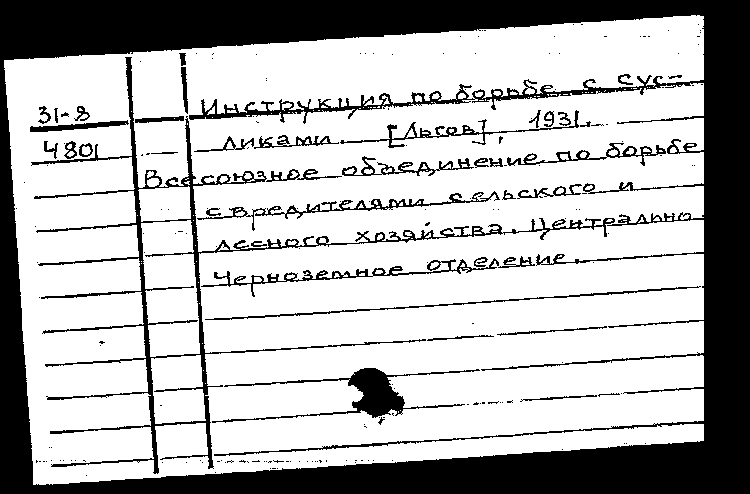 31-8
Инструкция по борьбе с сус-
4801
ликами. [Льгов], 1931.
Всесоюзное объединение по борьбе
с вредителями сельского и
лесного хозяйства. Центрально
Черноземное отделение.